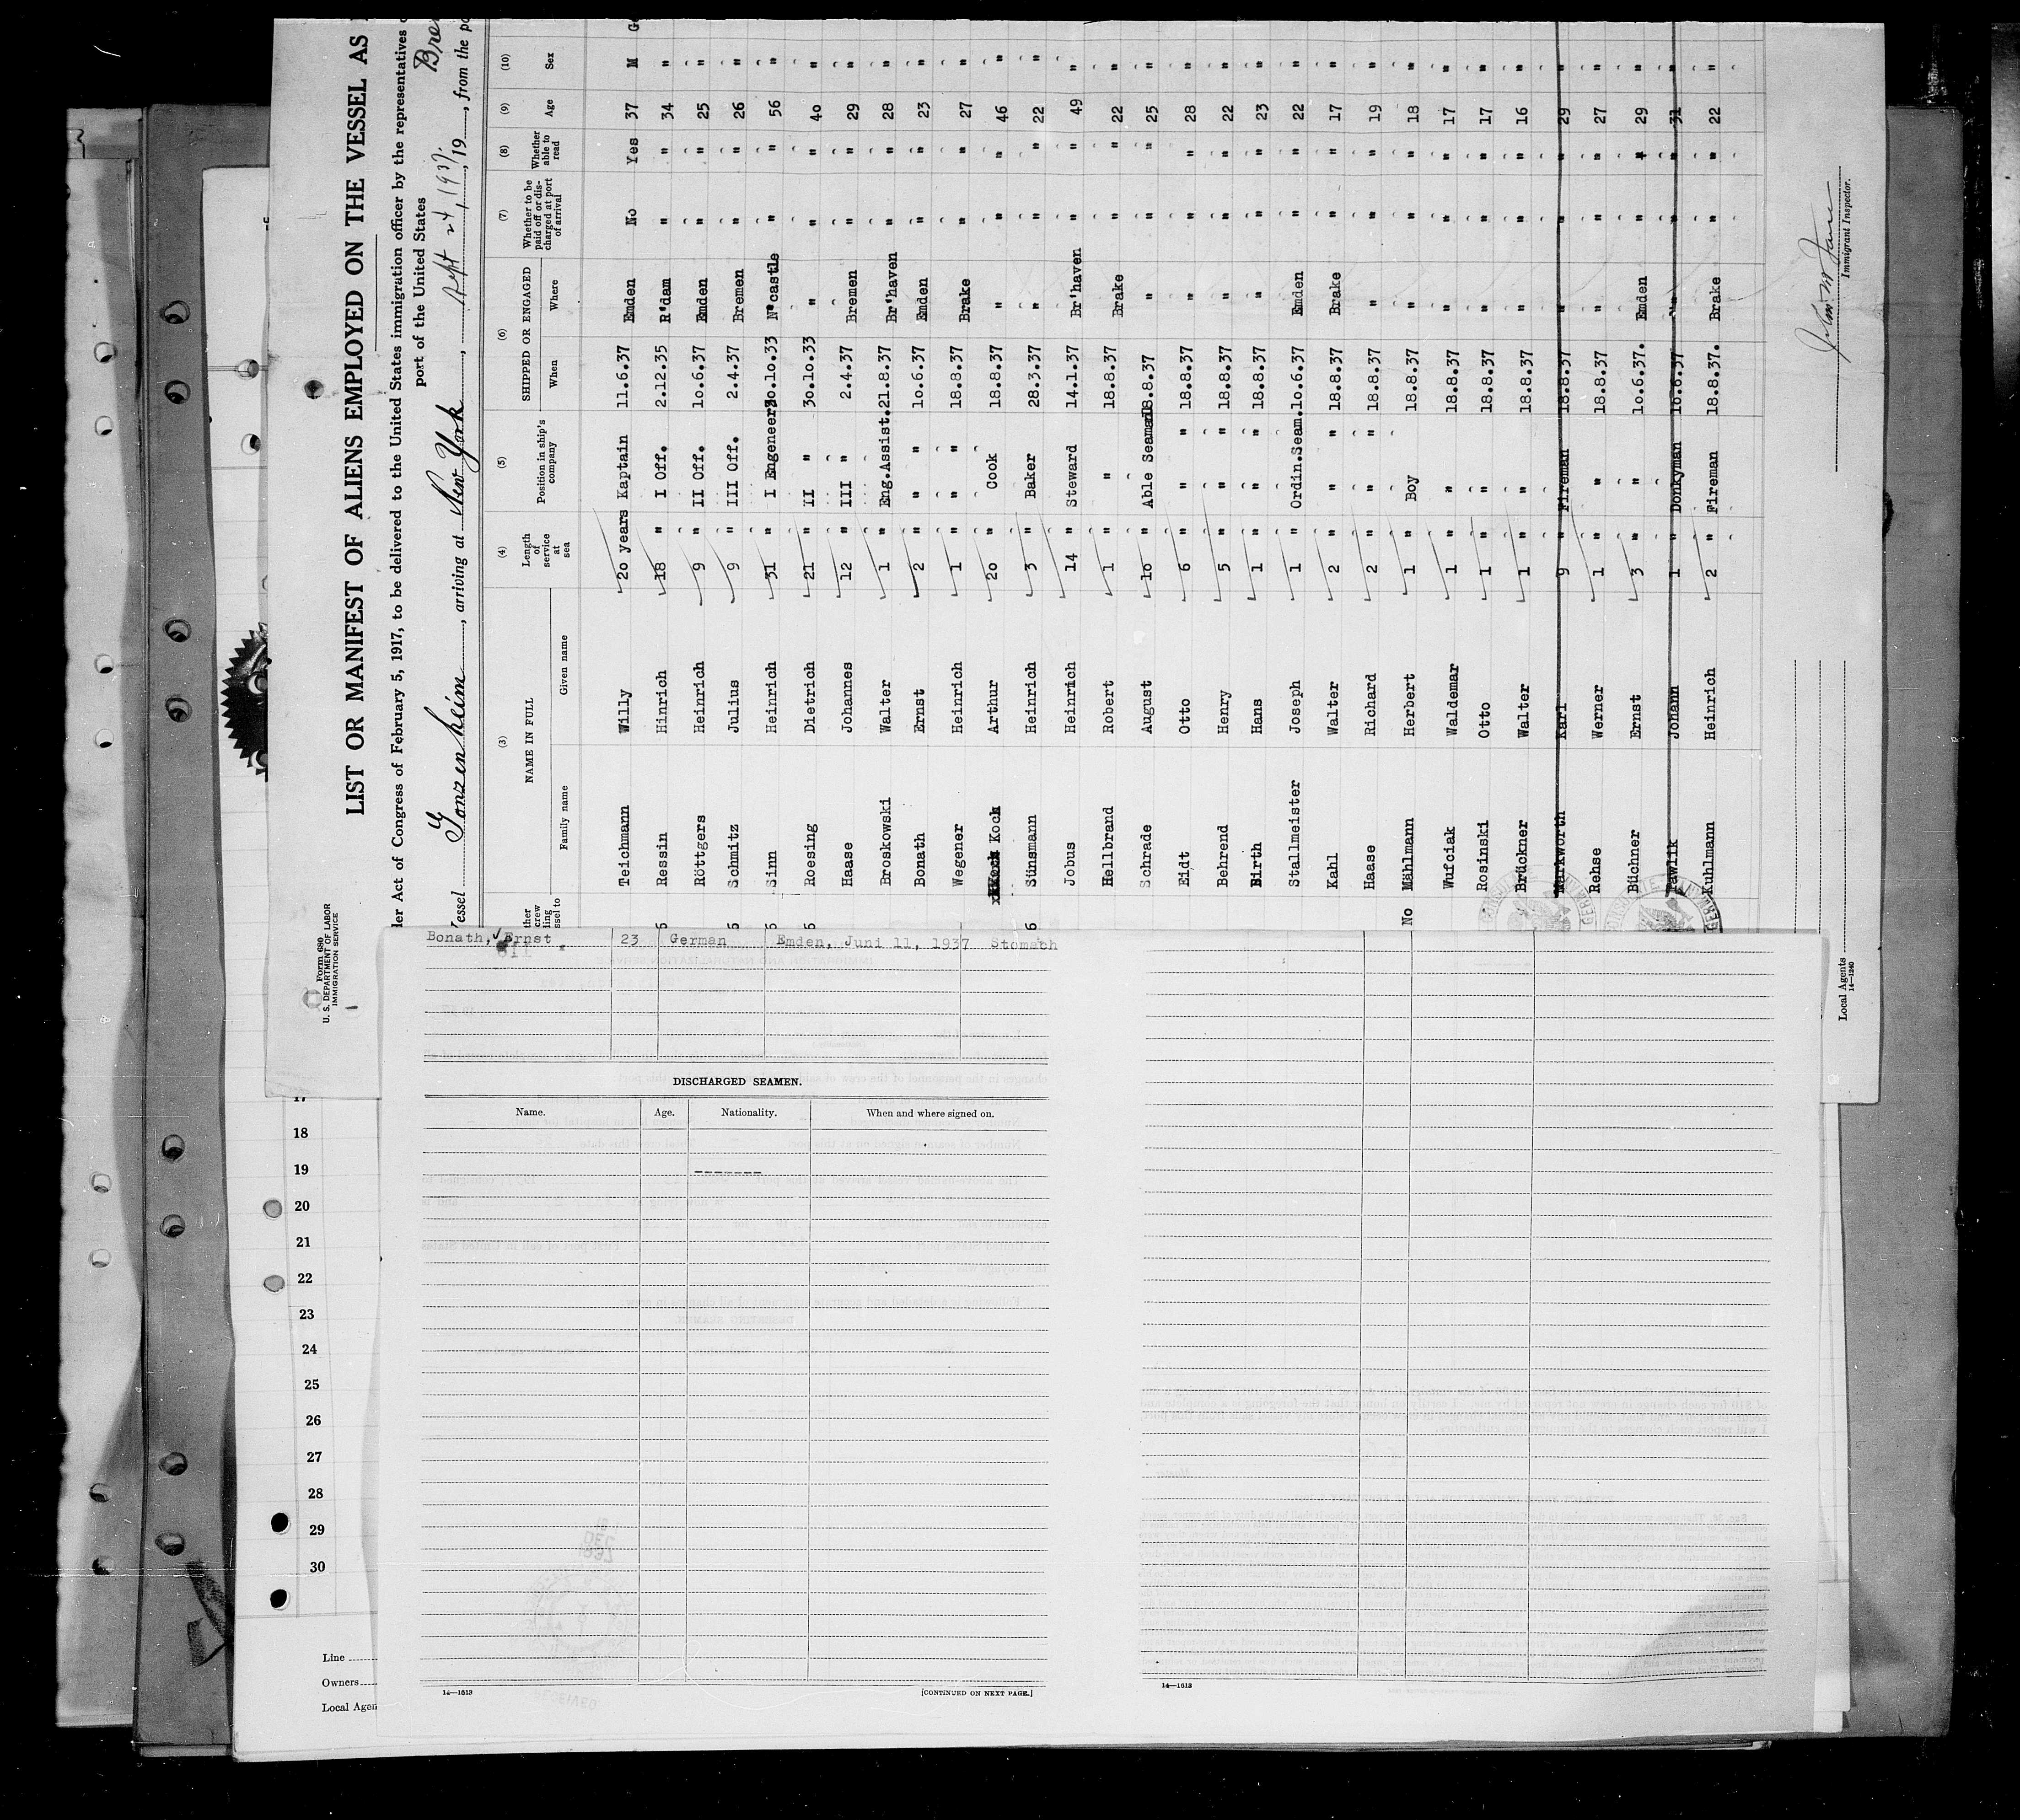 Form 680
U. S. DEPARTMENT OF LABOR
IMMIGRATION SERVICE
LIST OR MANIFEST OF ALIENS EMPLOYED ON THE VESSEL AS
der Act of Congress of February 5, 1917, to be delivered to the United States immigration officer by the representatives
port of the United States
Vessel Gonzenheim, arriving at New York, Sept 24, 1937, 19, from the po
(3) (4) (5) (6) (7) (8) (9) (10)
NAME IN FULL Length of service at sea Position in ship's company SHIPPED OR ENGAGED Whether to be paid off or discharged at port of arrival Whether able to read Age Sex
Family name Given name When Where
Teichmann Willy 20 years Kaptain 11.6.37 Emden No Yes 37 M
Ressin Hinrich 18 " I Off. 2.12.35 R'dam " " 34 "
Röttgers Heinrich 9 " II Off. 10.6.37 Emden " " 25 "
Schmitz Julius 9 " III Off. 2.4.37 Bremen " " 26 "
Sinn Heinrich 31 " I Engeneer 30.10.33 N'castle " " 56 "
Roesing Dietrich 21 " II " 30.10.33 " " " 40 "
Haase Johannes 12 " III " 2.4.37 Bremen " " 29 "
Broskowski Walter 1 " Eng.Assist. 21.8.37 Br'haven " " 28 "
Bonath Ernst 2 " " " 10.6.37 Emden " " 23 "
Wegener Heinrich 1 " " " 18.8.37 Brake " " 27 "
Koch Arthur 20 " Cook 18.8.37 " " " 46 "
Sünsmann Heinrich 3 " Baker 28.3.37 " " " 22 "
Jobus Heinrich 14 " Steward 14.1.37 Br'haven " " 49 "
Hellbrand Robert 1 " " 18.8.37 Brake " " 22 "
Schrade August 10 " Able Seaman 18.8.37 " " " 25 "
Eidt Otto 6 " " " 18.8.37 " " " 28 "
Behrend Henry 5 " " " 18.8.37 " " " 22 "
Birth Hans 1 " " " 18.8.37 " " " 23 "
Stallmeister Joseph 1 " Ordin.Seam. 10.6.37 Emden " " 22 "
Kahl Walter 2 " " " 18.8.37 Brake " " 17 "
Haase Richard 2 " " " 18.8.37 " " " 19 "
No Mählmann Herbert 1 " Boy 18.8.37 " " " 18 "
Wufciak Waldemar 1 " " 18.8.37 " " " 17 "
Rosinski Otto 1 " " 18.8.37 " " " 17 "
Brückner Walter 1 " " 18.8.37 " " " 16 "
Markworth Karl 9 " Fireman 18.8.37 " " " 29 "
Rehse Werner 1 " " 18.8.37 " " " 27 "
Büchner Ernst 3 " " 10.6.37. Emden " " 29 "
Pawlik Johann 1 " Donkyman 10.6.37 " " " 31 "
Kuhlmann Heinrich 2 " Fireman 18.8.37. Brake " " 22 "
Immigrant Inspector.
Local Agents
14—1240
Bonath, Ernst 23 German Emden, Juni 11, 1937 Stomach
DISCHARGED SEAMEN.
Name. Age. Nationality. When and where signed on.
-------
14—1513 [CONTINUED ON NEXT PAGE.]
14—1513
17
18
19
20
21
22
23
24
25
26
27
28
29
30
Line
Owners
Local Agen